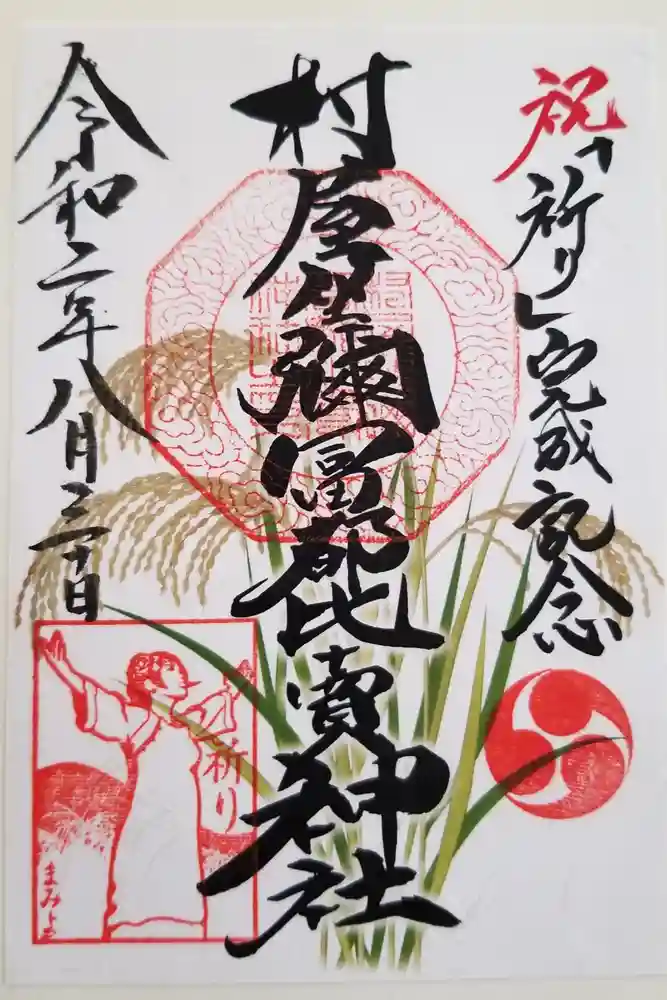 祝「祈り」完成記念
村屋坐彌冨都比賣神社
令和二年八月三十日
祈り